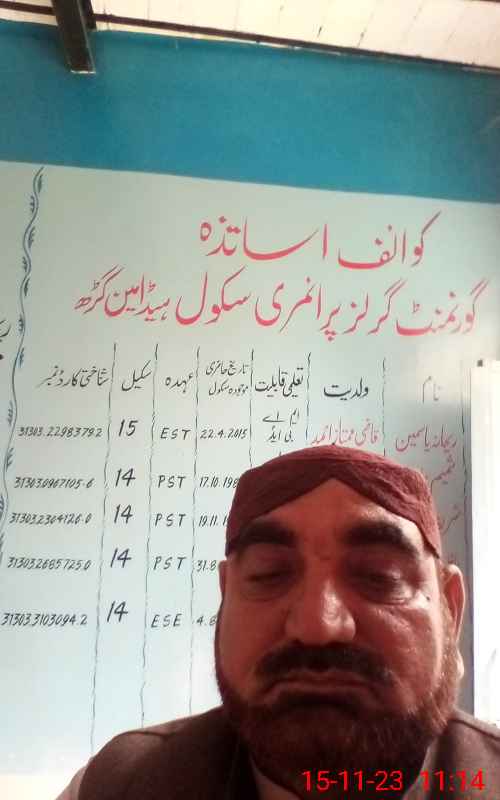 کوائف اساتذہ
گورنمنٹ گرلز پرائمری سکول ہیڈ امین گڑھ
نام ولدیت تعلیمی قابلیت تاریخ حاضری موجودہ سکول عہدہ سکیل شناختی کارڈ نمبر
ریحانہ یاسمین قاضی ممتاز احمد ایم اے بی ایڈ 22.4.2015 EST 15 31303.2298379.2
شمیم 17.10.198 PST 14 31303.0967105.6
19.11.1 PST 14 31303.2304126.0
31.8 PST 14 31303.2685725.0
4.8 ESE 14 31303.3103094.2
15-11-23 11:14